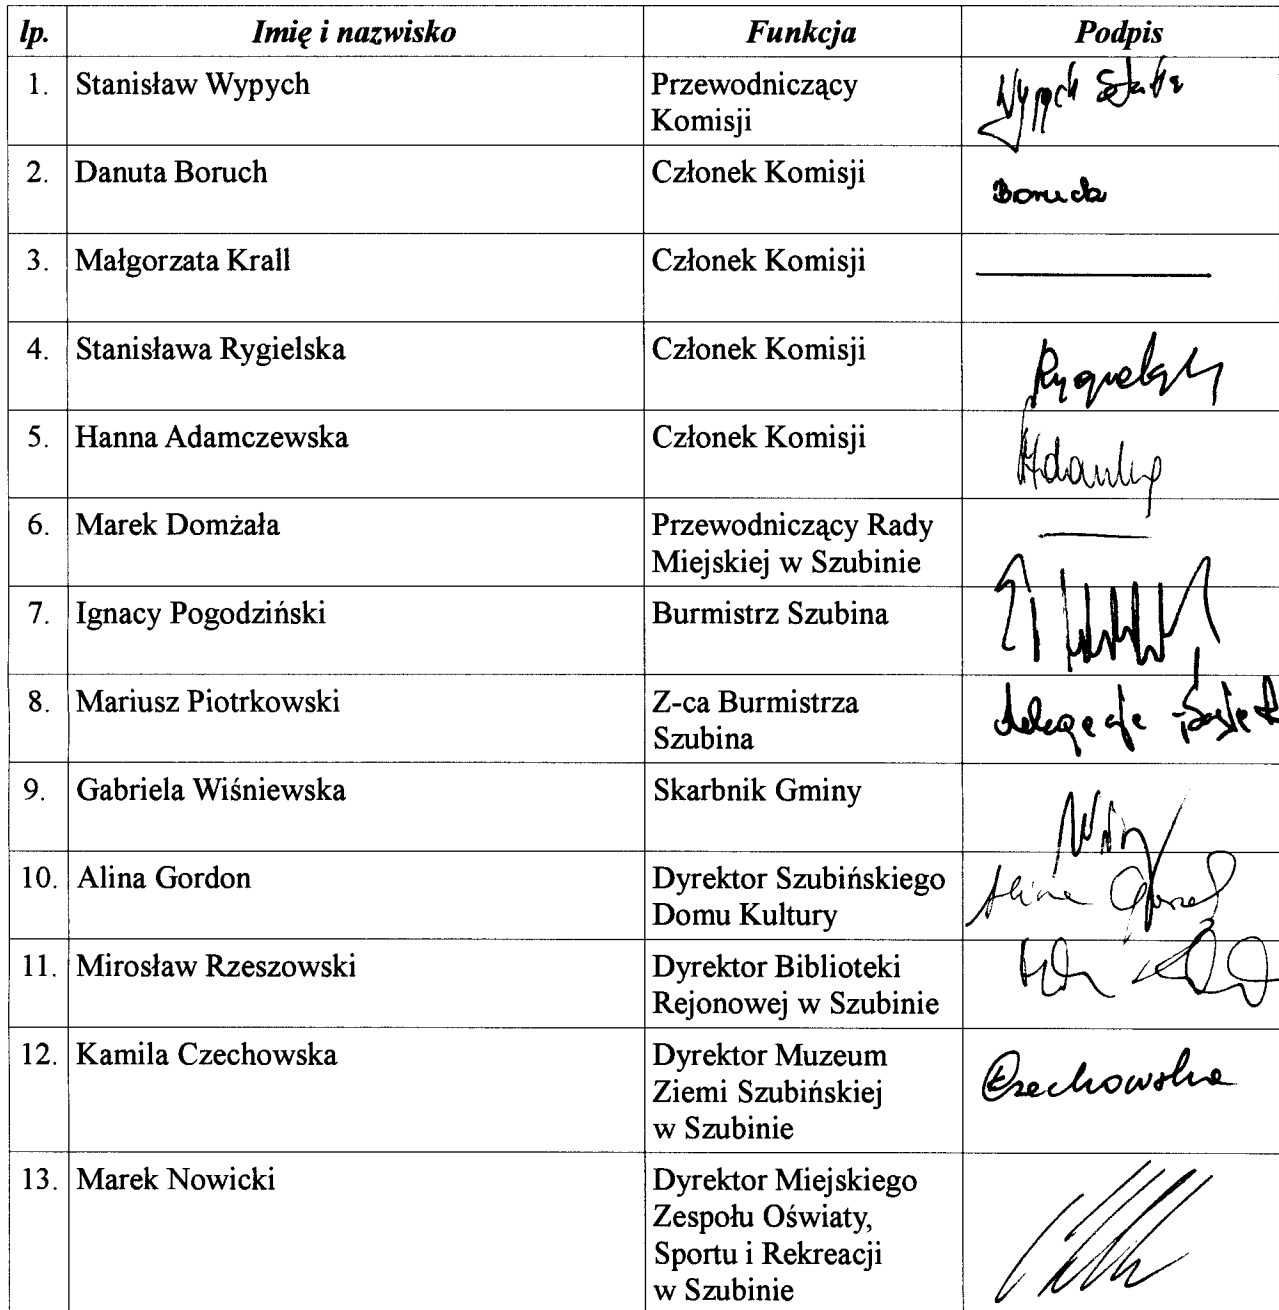 lp. Imię i nazwisko Funkcja Podpis
1. Stanisław Wypych Przewodniczący
Komisji
Wypych
2. Danuta Boruch Członek Komisji
Boruch
3. Małgorzata Krall Członek Komisji
4. Stanisława Rygielska Członek Komisji
5. Hanna Adamczewska Członek Komisji
6. Marek Domżała Przewodniczący Rady
Miejskiej w Szubinie
7. Ignacy Pogodziński Burmistrz Szubina
8. Mariusz Piotrkowski Z-ca Burmistrza
Szubina
9. Gabriela Wiśniewska Skarbnik Gminy
10. Alina Gordon Dyrektor Szubińskiego
Domu Kultury
Alina
11. Mirosław Rzeszowski Dyrektor Biblioteki
Rejonowej w Szubinie
12. Kamila Czechowska Dyrektor Muzeum
Ziemi Szubińskiej
w Szubinie
Czechowska
13. Marek Nowicki Dyrektor Miejskiego
Zespołu Oświaty,
Sportu i Rekreacji
w Szubinie